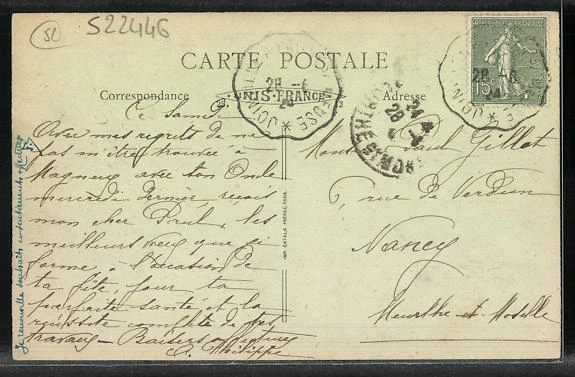 52
S22446
CARTE POSTALE
Correspondance
UNIS-FRANCE
Adresse
Ce Samedi
Avec mes regrets de ne
pas m'être trouvée à
Magneux avec ton Oncle
mercredi dernier, reçois
mon cher Paul, les
meilleurs vœux que je
forme à l'occasion de
ta fête, pour ta
parfaite santé et la
réussite complète de tes
travaux - Baisers affectueux
A. Philippe
Je renouvelle souhaits
IMP. CATALA FRÈRES, PARIS
Monsieur Paul Gillot
6, rue de Verdun
Nancy
Meurthe-et-Moselle
28 -6
24
28 -6
24
15